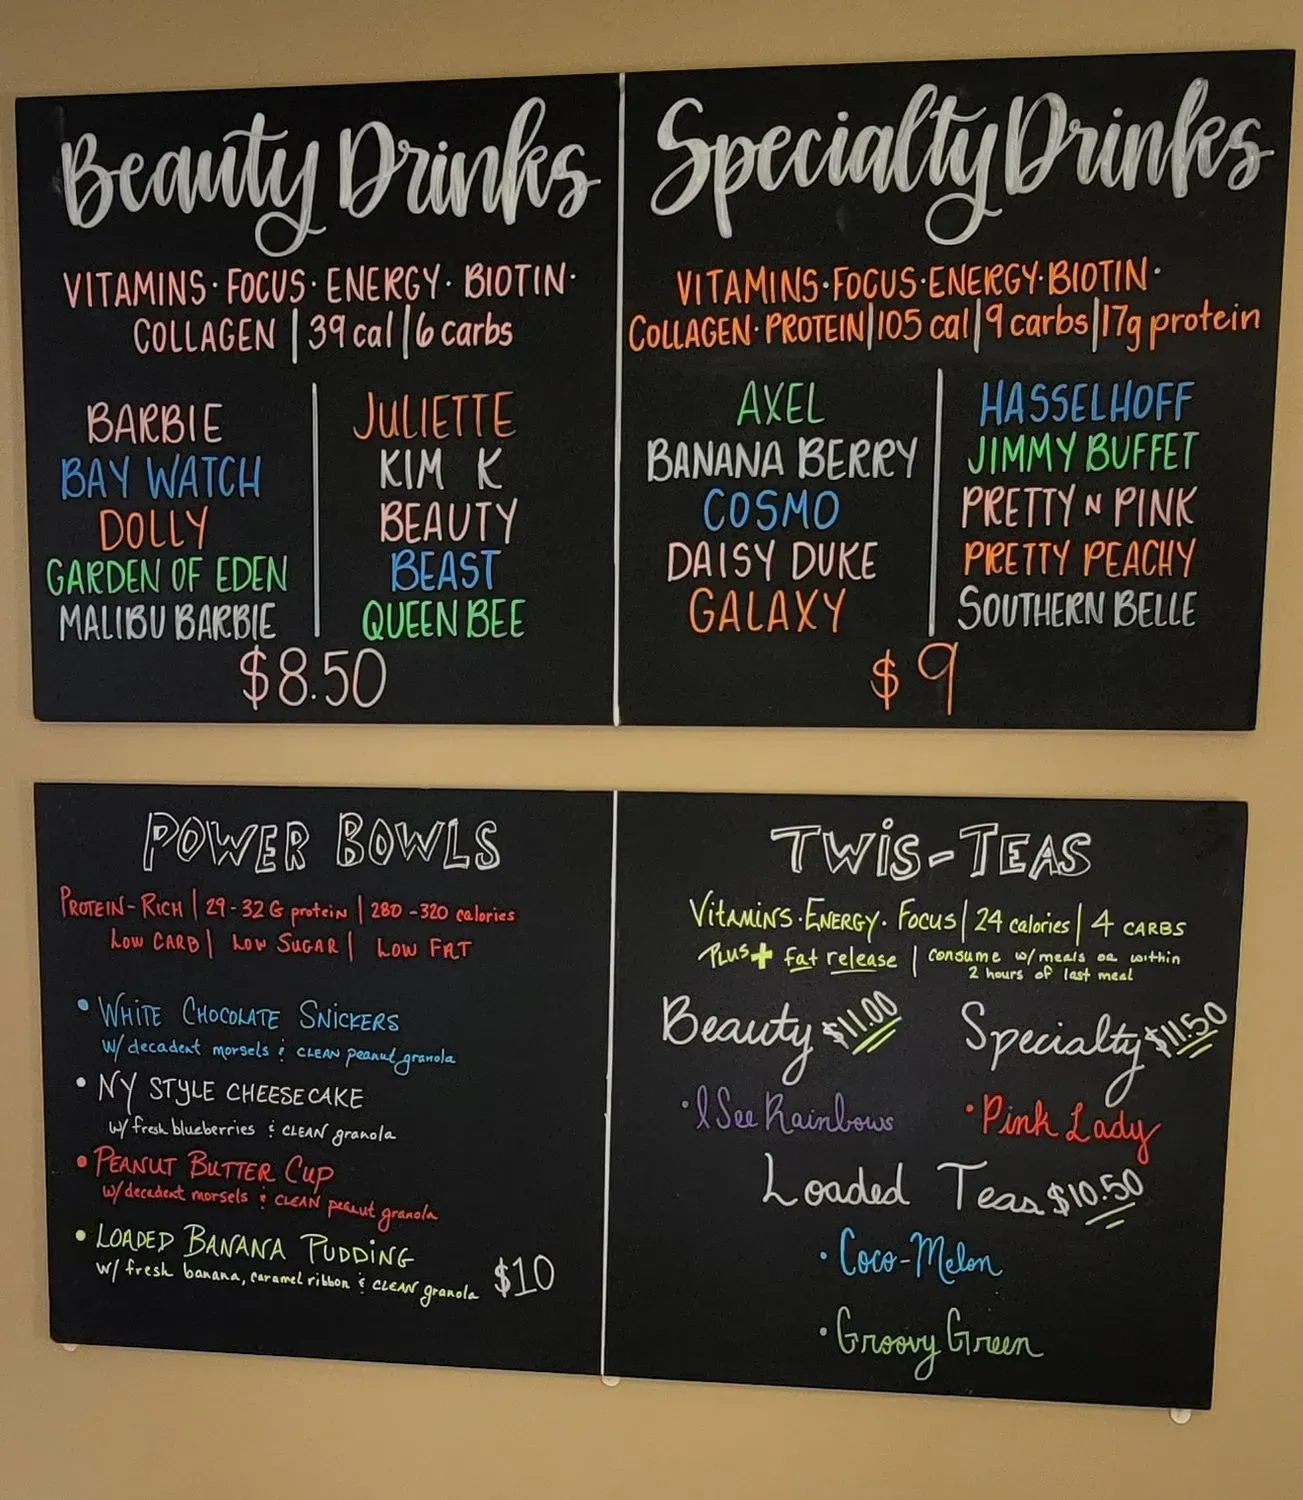 Beauty Drinks
VITAMINS · FOCUS · ENERGY · BIOTIN ·
COLLAGEN | 39 cal | 6 carbs
BARBIE
BAY WATCH
DOLLY
GARDEN OF EDEN
MALIBU BARBIE
JULIETTE
KIM K
BEAUTY
BEAST
QUEEN BEE
$8.50
Specialty Drinks
VITAMINS · FOCUS · ENERGY · BIOTIN ·
COLLAGEN · PROTEIN | 105 cal | 9 carbs | 17g protein
AXEL
BANANA BERRY
COSMO
DAISY DUKE
GALAXY
HASSELHOFF
JIMMY BUFFET
PRETTY N PINK
PRETTY PEACHY
SOUTHERN BELLE
$9
POWER BOWLS
PROTEIN-RICH | 29-32 G protein | 280-320 calories
LOW CARB | LOW SUGAR | LOW FAT
• WHITE CHOCOLATE SNICKERS
W/ decadent morsels & CLEAN peanut granola
• NY STYLE CHEESECAKE
W/ fresh blueberries & CLEAN granola
• PEANUT BUTTER CUP
W/ decadent morsels & CLEAN peanut granola
• LOADED BANANA PUDDING
W/ fresh banana, caramel ribbon & CLEAN granola
$10
TWIS-TEAS
VITAMINS · ENERGY · FOCUS | 24 calories | 4 CARBS
PLUS + fat release | consume w/ meals or within
2 hours of last meal
Beauty $11.00
• I See Rainbows
Specialty $11.50
• Pink Lady
Loaded Teas $10.50
• Coco-Melon
• Groovy Green